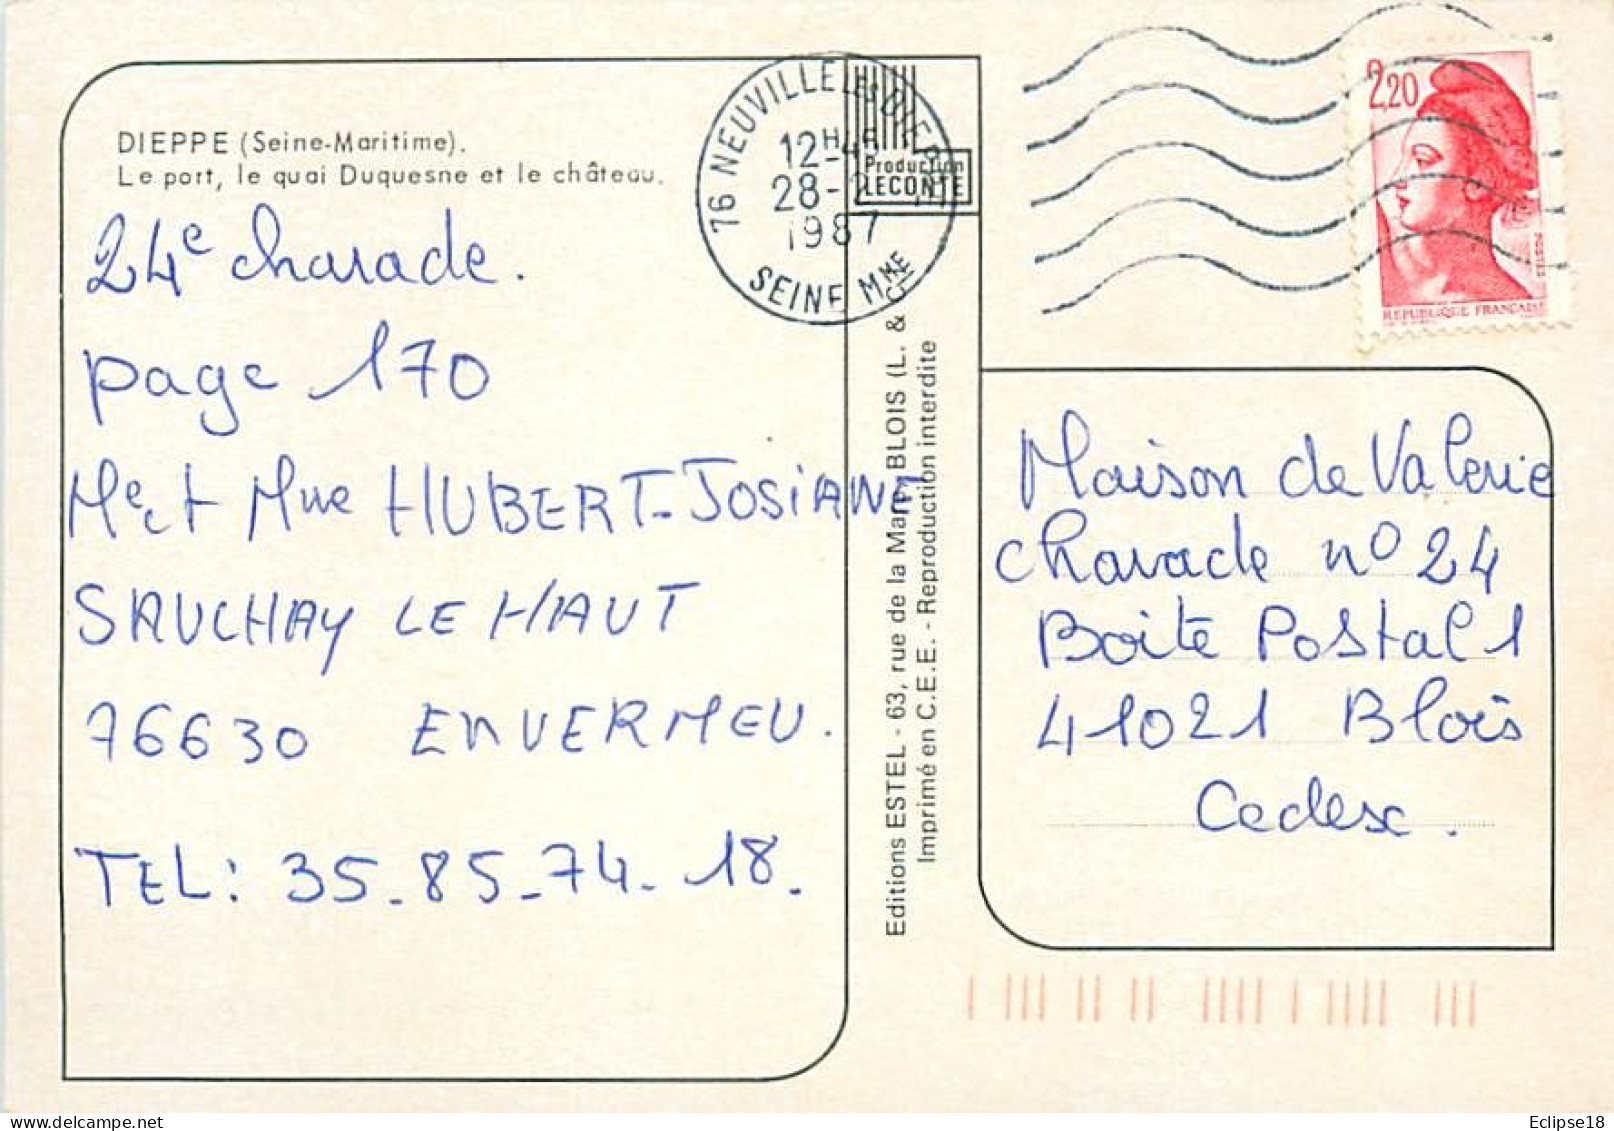 DIEPPE (Seine-Maritime).
Le port, le quai Duquesne et le château.
24e charade.
page 170
Me et Mme HUBERT-JOSIANE
SAUCHAY LE HAUT
76630 ENVERMEU.
TEL: 35-85-74-18.
76 NEUVILLE LES DIEPPE
12H45
28-2
1987
SEINE MME
Production
LECONTE
Editions ESTEL - 63, rue de la Mare BLOIS (L. & C
Imprimé en C.E.E. - Reproduction interdite
2,20
POSTES
REPUBLIQUE FRANCAISE
Maison de Valerie
charade no 24
Boite Postal 1
41021 Blois
Cedex.
delcampe.net
Eclipse18